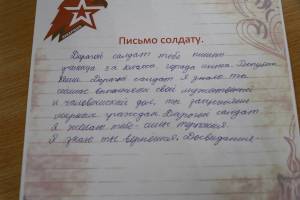 Письмо солдату.
Дорогой солдат тебе пишет
ученица 2а класса города
Дорогой солдат Я знаю ты
сейчас выполняешь свой мужественный
и человеческий долг, ты защищаешь
мирных граждан Дорогой солдат
я желаю тебе силы терпения.
Я знаю ты вернёшься. Досвидания